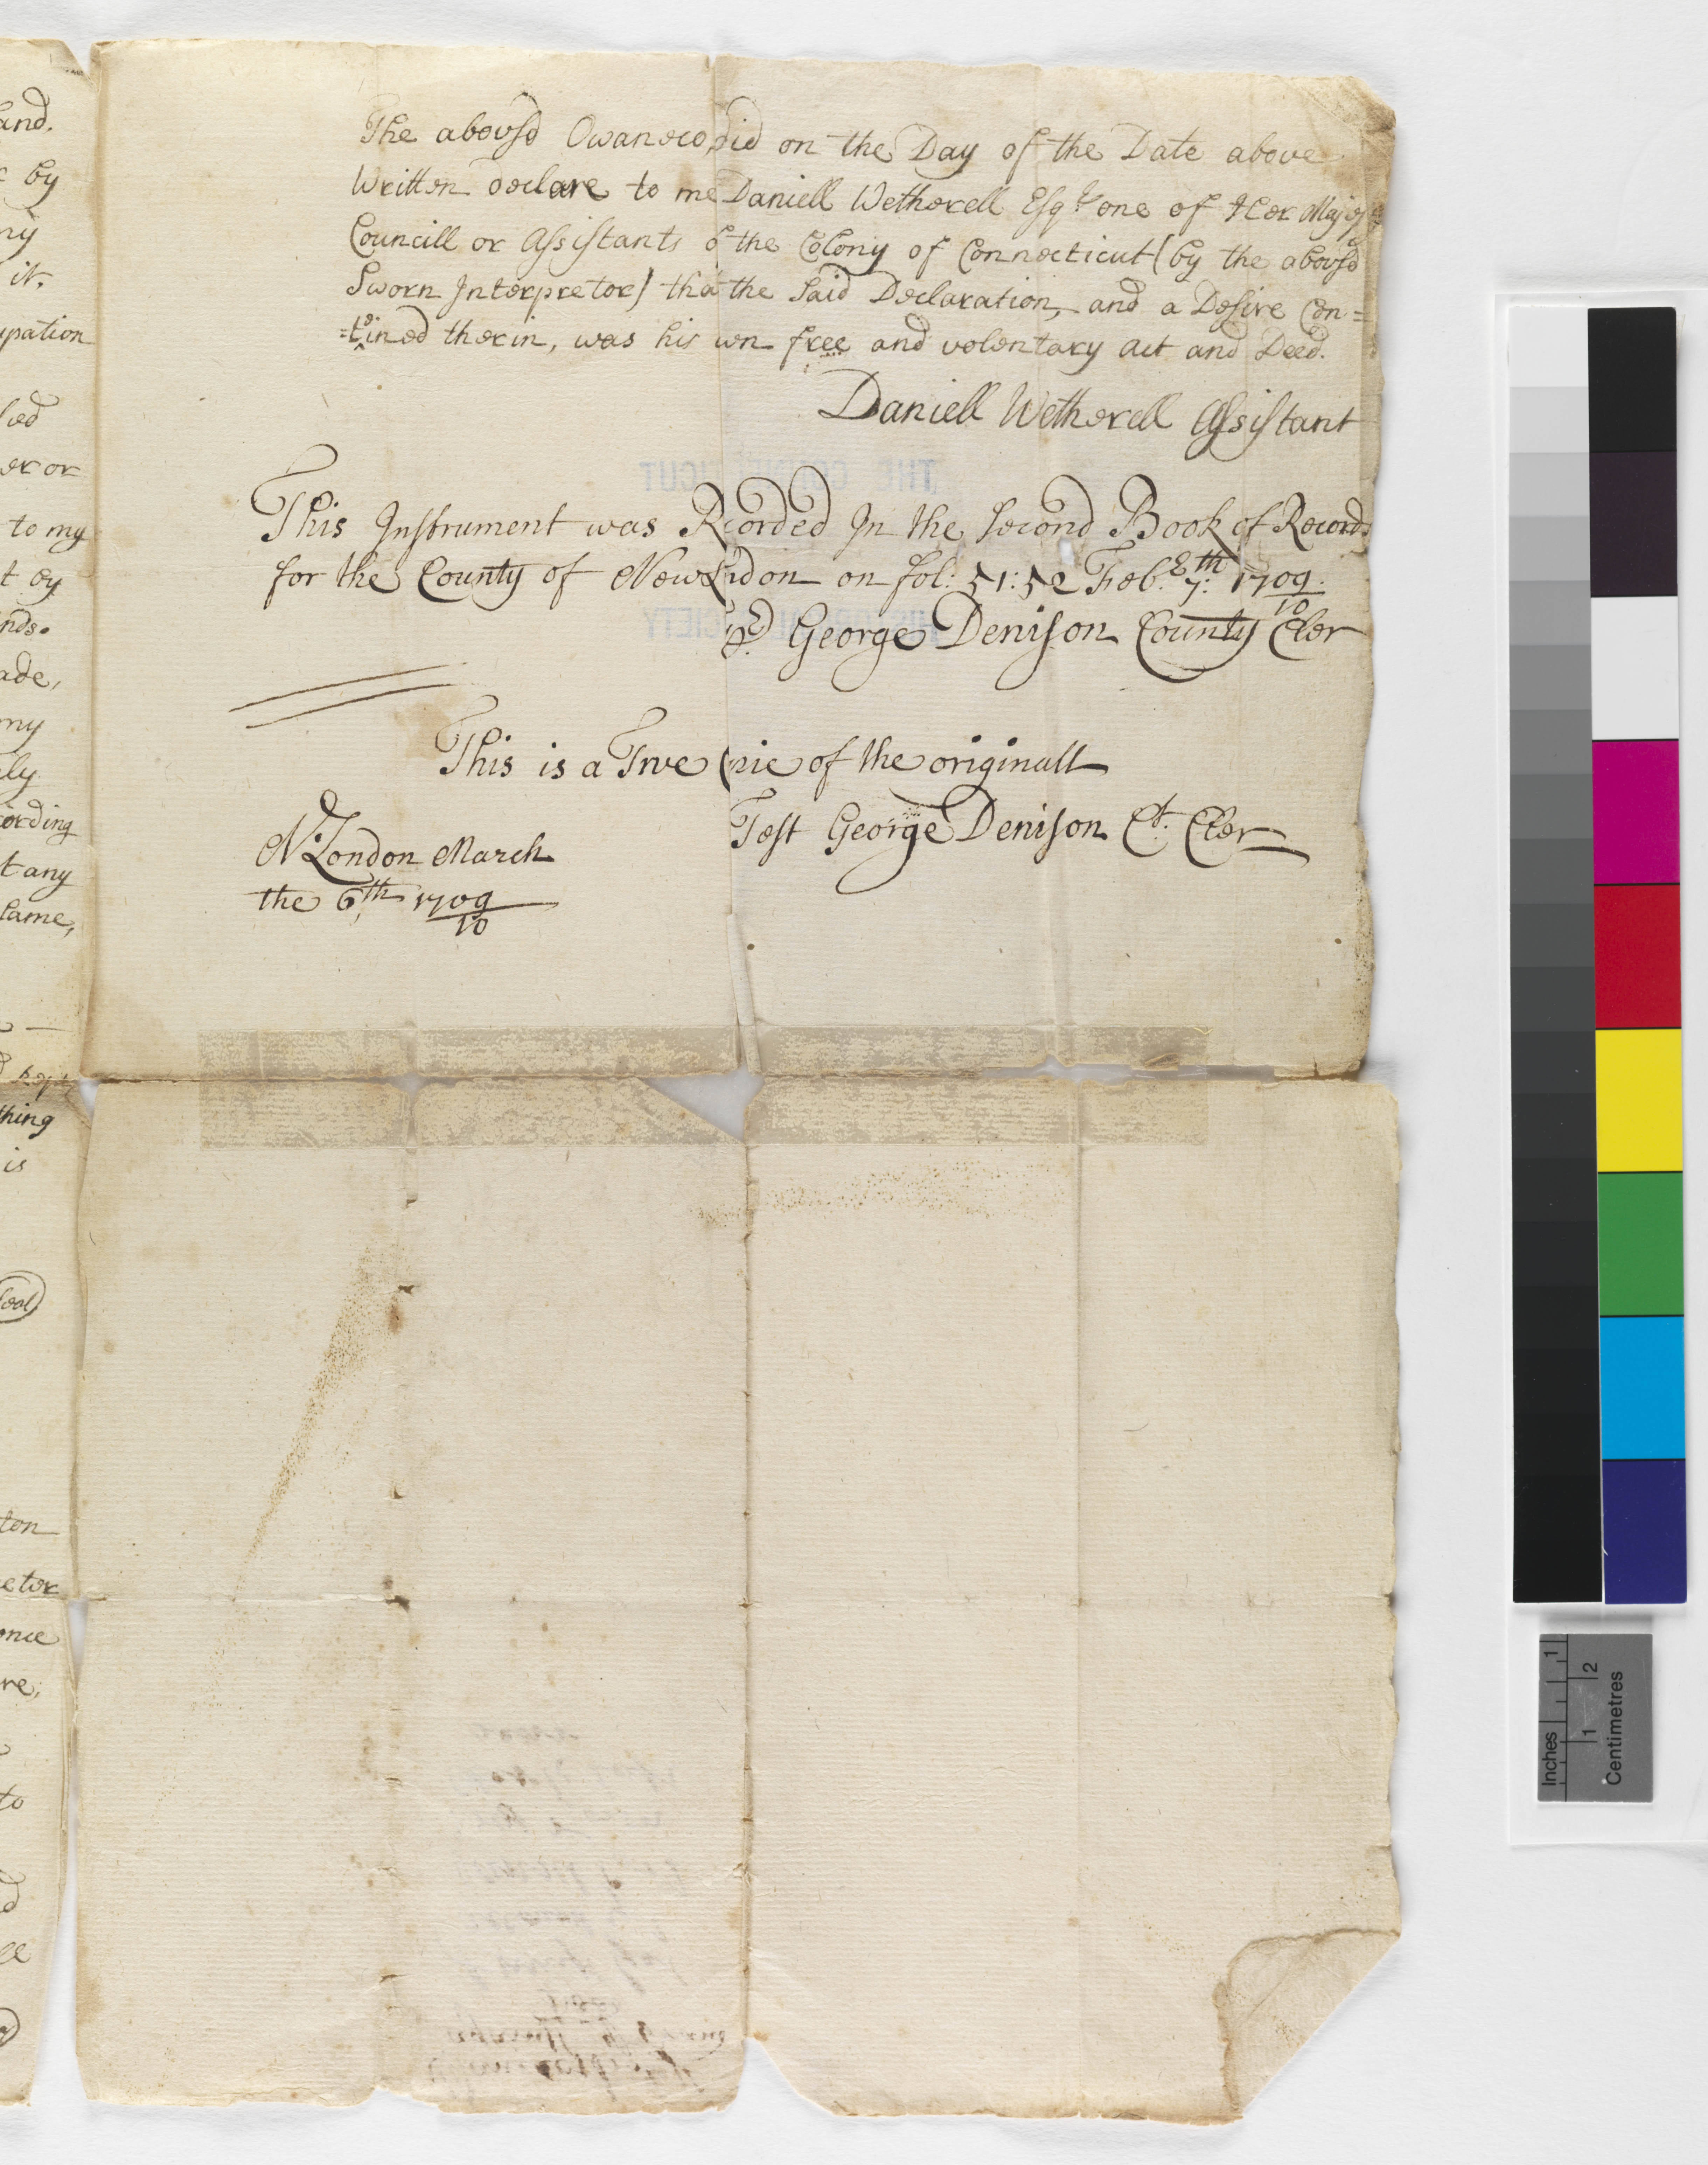 and.
by
my
it.
upation
lied
er or
to my
t by
nds.
ade,
my
ely
cording
t any
same,
thing
is
ton
etor
ence
re,
to
The abovsd Owaneco, did on the Day of the Date above
Written declare to me Daniell Wetherell Esqr one of Her Majests
Councill or Assistants o the Colony of Connecticut (by the abovsd
Sworn Interpretor) tha the Said Declaration, and a Desire Con=
=tined therin, was his wn free and volentary act and Deed.
Daniell Wetherell Assistant
THE CONNECTICUT
This Instrument was Rcorded In the Second Book of Records
for the County of New Lndon on fol: 51:52 Feb. 7: 8th 1709/10
SOCIETY
pd George Denison County Cler
This is a True Cpie of the originall
Test George Denison Ct. Cler
N. London March
the 6th 1709/10
Inches 1
1 2
Centimetres